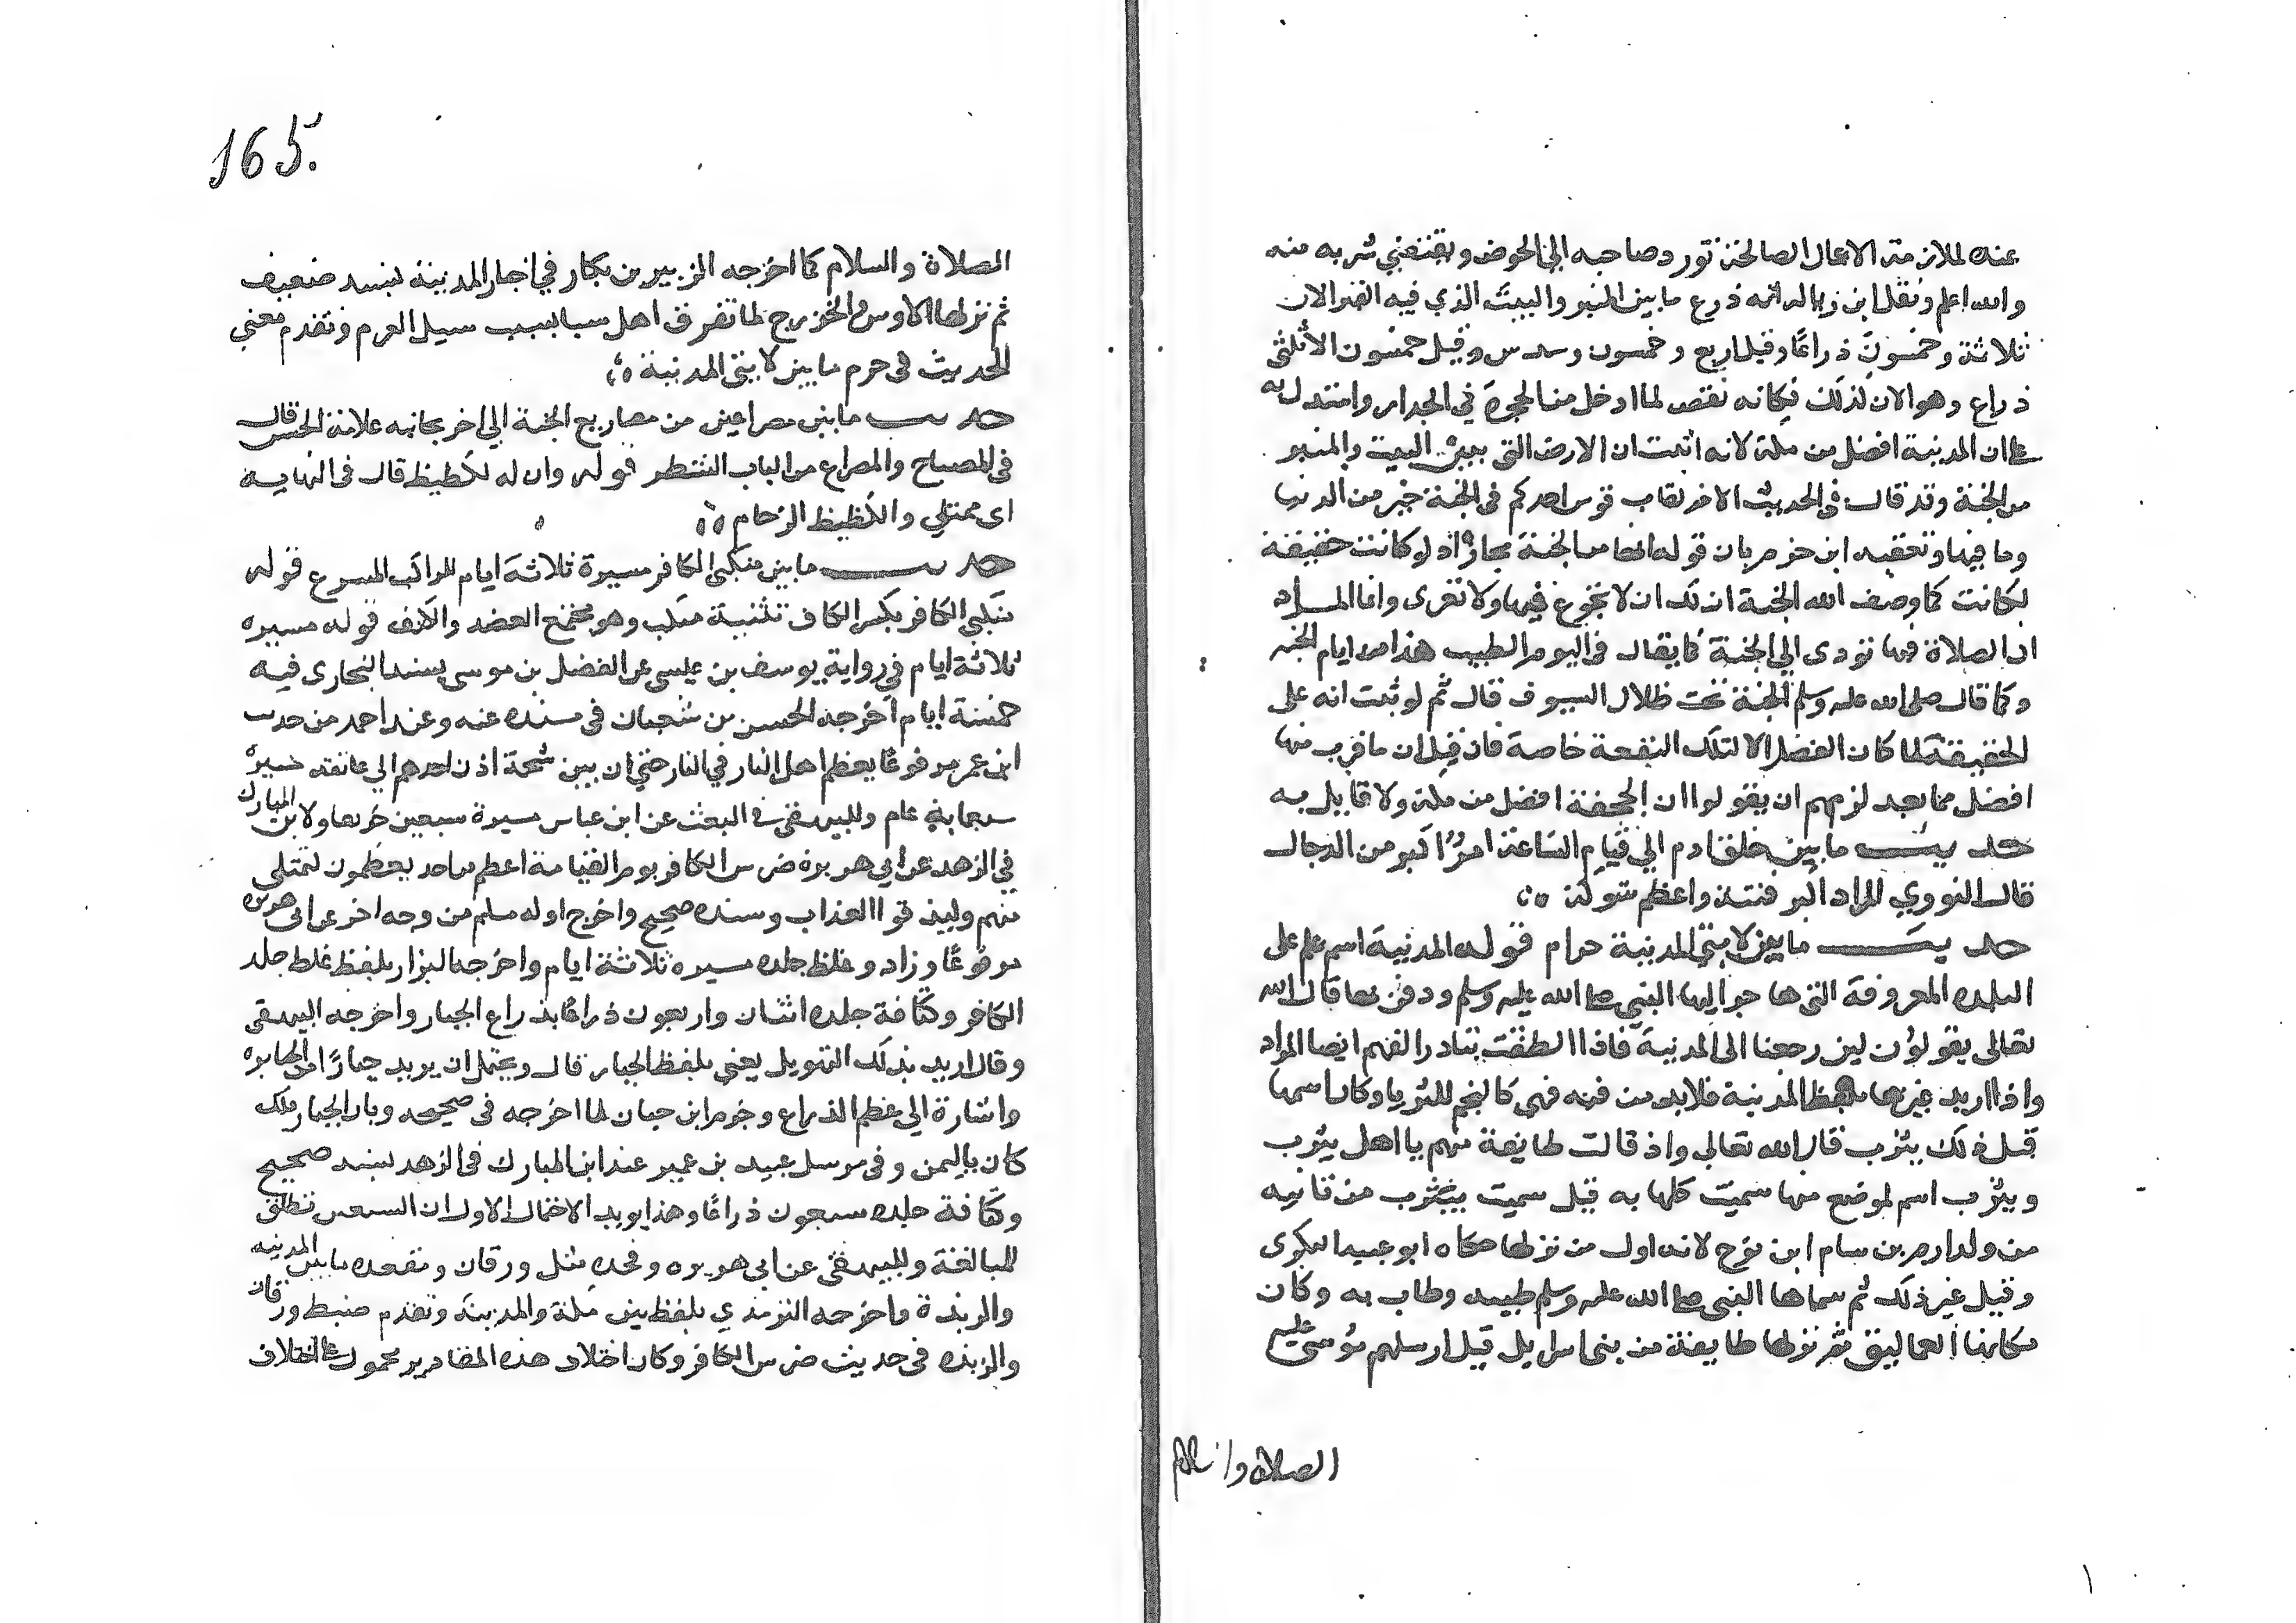 عنده لملازمته الاعمال الصالحة تورد صاحبه الي الحوض ويقتضي شربه منه
والله اعلم ونقل ابن زبالة انه ذرع ما بين المنبر والبيت الذي فيه القبر الان
ثلاثة وخمسون ذراعًا وقيل اربع وخمسون وسدس وقيل خمسون الا ثلثي
ذراع وهو الان لذلك فكانه نقص لما ادخل من الحجرة في الجدار واستدل به
على ان المدينة افضل من مكة لانه اثبت ان الارض التي بين البيت والمنبر
من الجنة وقد قال في الحديث الاخر لقاب قوس احدكم في الجنة خير من الدنيا
وما فيها وتعقبه ابن حزم بان قوله انها من الجنة مجازًا اذ لو كانت حقيقة
لكانت كما وصف الله الجنة ان لك ان لا تجوع فيها ولا تعرى وانما المراد
ان الصلاة فيها تودي الي الجنة كما يقال في اليوم الطيب هذا من ايام الجنة
وكما قال صلى الله عليه وسلم الجنة تحت ظلال السيوف قال ثم لو ثبت انه على
الحقيقة لما كان الفضل الا لتلك البقعة خاصة فان قيل ان ما قرب منها
افضل مما بعد لزمهم ان يقولوا ان الجحفة افضل من مكة ولا قايل به
حديث ما بين خلق ادم الي قيام الساعة امرًا اكبر من الدجال
قال النووي المراد اكبر فتنة واعظم شوكة
حديث ما بين لابتي المدينة حرام قوله المدينة اسم علم على
البلدة المعروفة التي هاجر اليها النبي صلى الله عليه وسلم ودفن بها قال الله
تعالى يقولون لين رجعنا الى المدينة فاذا اطلقت تبادر الفهم انها المراد
واذا اريد غيرها بلفظ المدينة فلابد من قيد فهي كالنجم للثريا وكان اسمها
قبل ذلك يثرب قال الله تعالى واذ قالت طايفة منهم يا اهل يثرب
ويثرب اسم لموضع منها سميت كلها به قيل سميت بيثرب من قانيه
من ولد ارم بن سام ابن نوح لانه اول من نزلها حكاه ابو عبيد البكرى
وقيل غير ذلك ثم سماها النبي صلى الله عليه وسلم طيبه وطاب به وكان
سكانها العماليق ثم نزلها طايفة من بنى اسرايل قيل ارسلهم موسى عليه
الصلاه والسلام
165.
الصلاة والسلام كما اخرجه الزبير بن بكار في اخبار المدينة بسند ضعيف
ثم نزلها الاوس والخزرج لما تفرق اهل سبا بسبب سيل العرم وتقدم معني
الحديث في حرم ما بين لابتي المدينة
حديث ما بين مصراعين من مصاريع الجنة الي اخر بجانبه علامة الحسن قال
في المصباح والمصراع من الباب الشطر قوله وان له لكظيظ قال في النهاية
اى ممتلي والكظيظ الزحام
حديث ما بين منكبي الكافر مسيرة ثلاثة ايام للراكب المسرع قوله
منكبي الكافر بكسر الكاف تثنية منكب وهو مجمع العضد والكتف قوله مسيره
ثلاثة ايام في رواية يوسف بن عيسى عن الفضل بن موسى بسند البخارى فيه
خمسة ايام اخرجه الحسن بن شعبان في مسنده عنه وعند احمد من حديث
ابن عمر مرفوعًا يعظم اهل النار في النار حتي ان بين شحمة اذن احدهم الي عاتقه مسيرة
سبعماية عام وللبيهقي في البعث عن ابن عباس مسيرة سبعين خريفا ولابن المبارك
في الزهد عن ابي هريرة ضرس الكافر يوم القيامة اعظم من احد يعظمون لتمتلي
منهم وليذوقوا العذاب وسنده صحيح واخرج اوله مسلم من وجه اخر عن ابي هريرة
مرفوعًا وزاد وغلظ جلده مسيره ثلاثة ايام واخرجه البزار بلفظ غلظ جلد
الكافر وكثافة جلده اثنان واربعون ذراعًا بذراع الجبار واخرجه البيهقي
وقال اريد بذلك التهويل يعني بلفظ الجبار قال ويحتمل ان يريد جبارًا من الجبابره
واشارة الي عظم الذراع وجزم ابن حبان لما اخرجه في صحيحه وبان الجبار ملك
كان باليمن وفي مرسل عبيد بن عمير عند ابن المبارك في الزهد بسند صحيح
وكثافة جلده سبعون ذراعًا وهذا يويد الاحتمال الاول ان السبعين تطلق
للمبالغة وللبيهقي عن ابي هريره وفخده مثل ورقان ومقعده ما بين المدينه
والربذة واخرجه الترمذي بلفظ بين مكة والمدينة وتقدم ضبط ورقان
والربذه في حديث ضرس الكافر وكان اختلاف هذه المقادير محمول على اختلاف